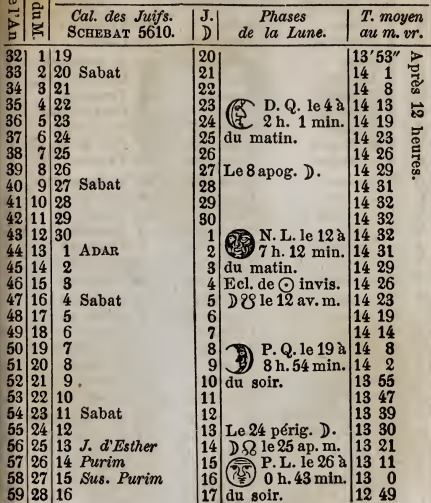 e l'An | du M | Cal. des Juifs. SCHEBAT 5610. | J. ☽ | Phases de la Lune. | T. moyen au m. vr.
32 | 1 | 19 | 20 | | 13'53"
33 | 2 | 20 Sabat | 21 | | 14 1
34 | 3 | 21 | 22 | | 14 8
35 | 4 | 22 | 23 | D. Q. le 4 à | 14 13
36 | 5 | 23 | 24 | 2 h. 1 min. | 14 19
37 | 6 | 24 | 25 | du matin. | 14 23
38 | 7 | 25 | 26 | | 14 26
39 | 8 | 26 | 27 | Le 8 apog. ☽. | 14 29
40 | 9 | 27 Sabat | 28 | | 14 31
41 | 10 | 28 | 29 | | 14 32
42 | 11 | 29 | 30 | | 14 32
43 | 12 | 30 | 1 | N. L. le 12 à | 14 32
44 | 13 | 1 ADAR | 2 | 7 h. 12 min. | 14 31
45 | 14 | 2 | 3 | du matin. | 14 29
46 | 15 | 3 | 4 | Ecl. de ☉ invis. | 14 26
47 | 16 | 4 Sabat | 5 | ☽☋ le 12 av. m. | 14 23
48 | 17 | 5 | 6 | | 14 19
49 | 18 | 6 | 7 | | 14 14
50 | 19 | 7 | 8 | P. Q. le 19 à | 14 8
51 | 20 | 8 | 9 | 8 h. 54 min. | 14 2
52 | 21 | 9 | 10 | du soir. | 13 55
53 | 22 | 10 | 11 | | 13 47
54 | 23 | 11 Sabat | 12 | | 13 39
55 | 24 | 12 | 13 | Le 24 périg. ☽. | 13 30
56 | 25 | 13 J. d'Esther | 14 | ☽☊ le 25 ap. m. | 13 21
57 | 26 | 14 Purim | 15 | P. L. le 26 à | 13 11
58 | 27 | 15 Sus. Purim | 16 | 0 h. 43 min. | 13 0
59 | 28 | 16 | 17 | du soir. | 12 49
Après 12 heures.